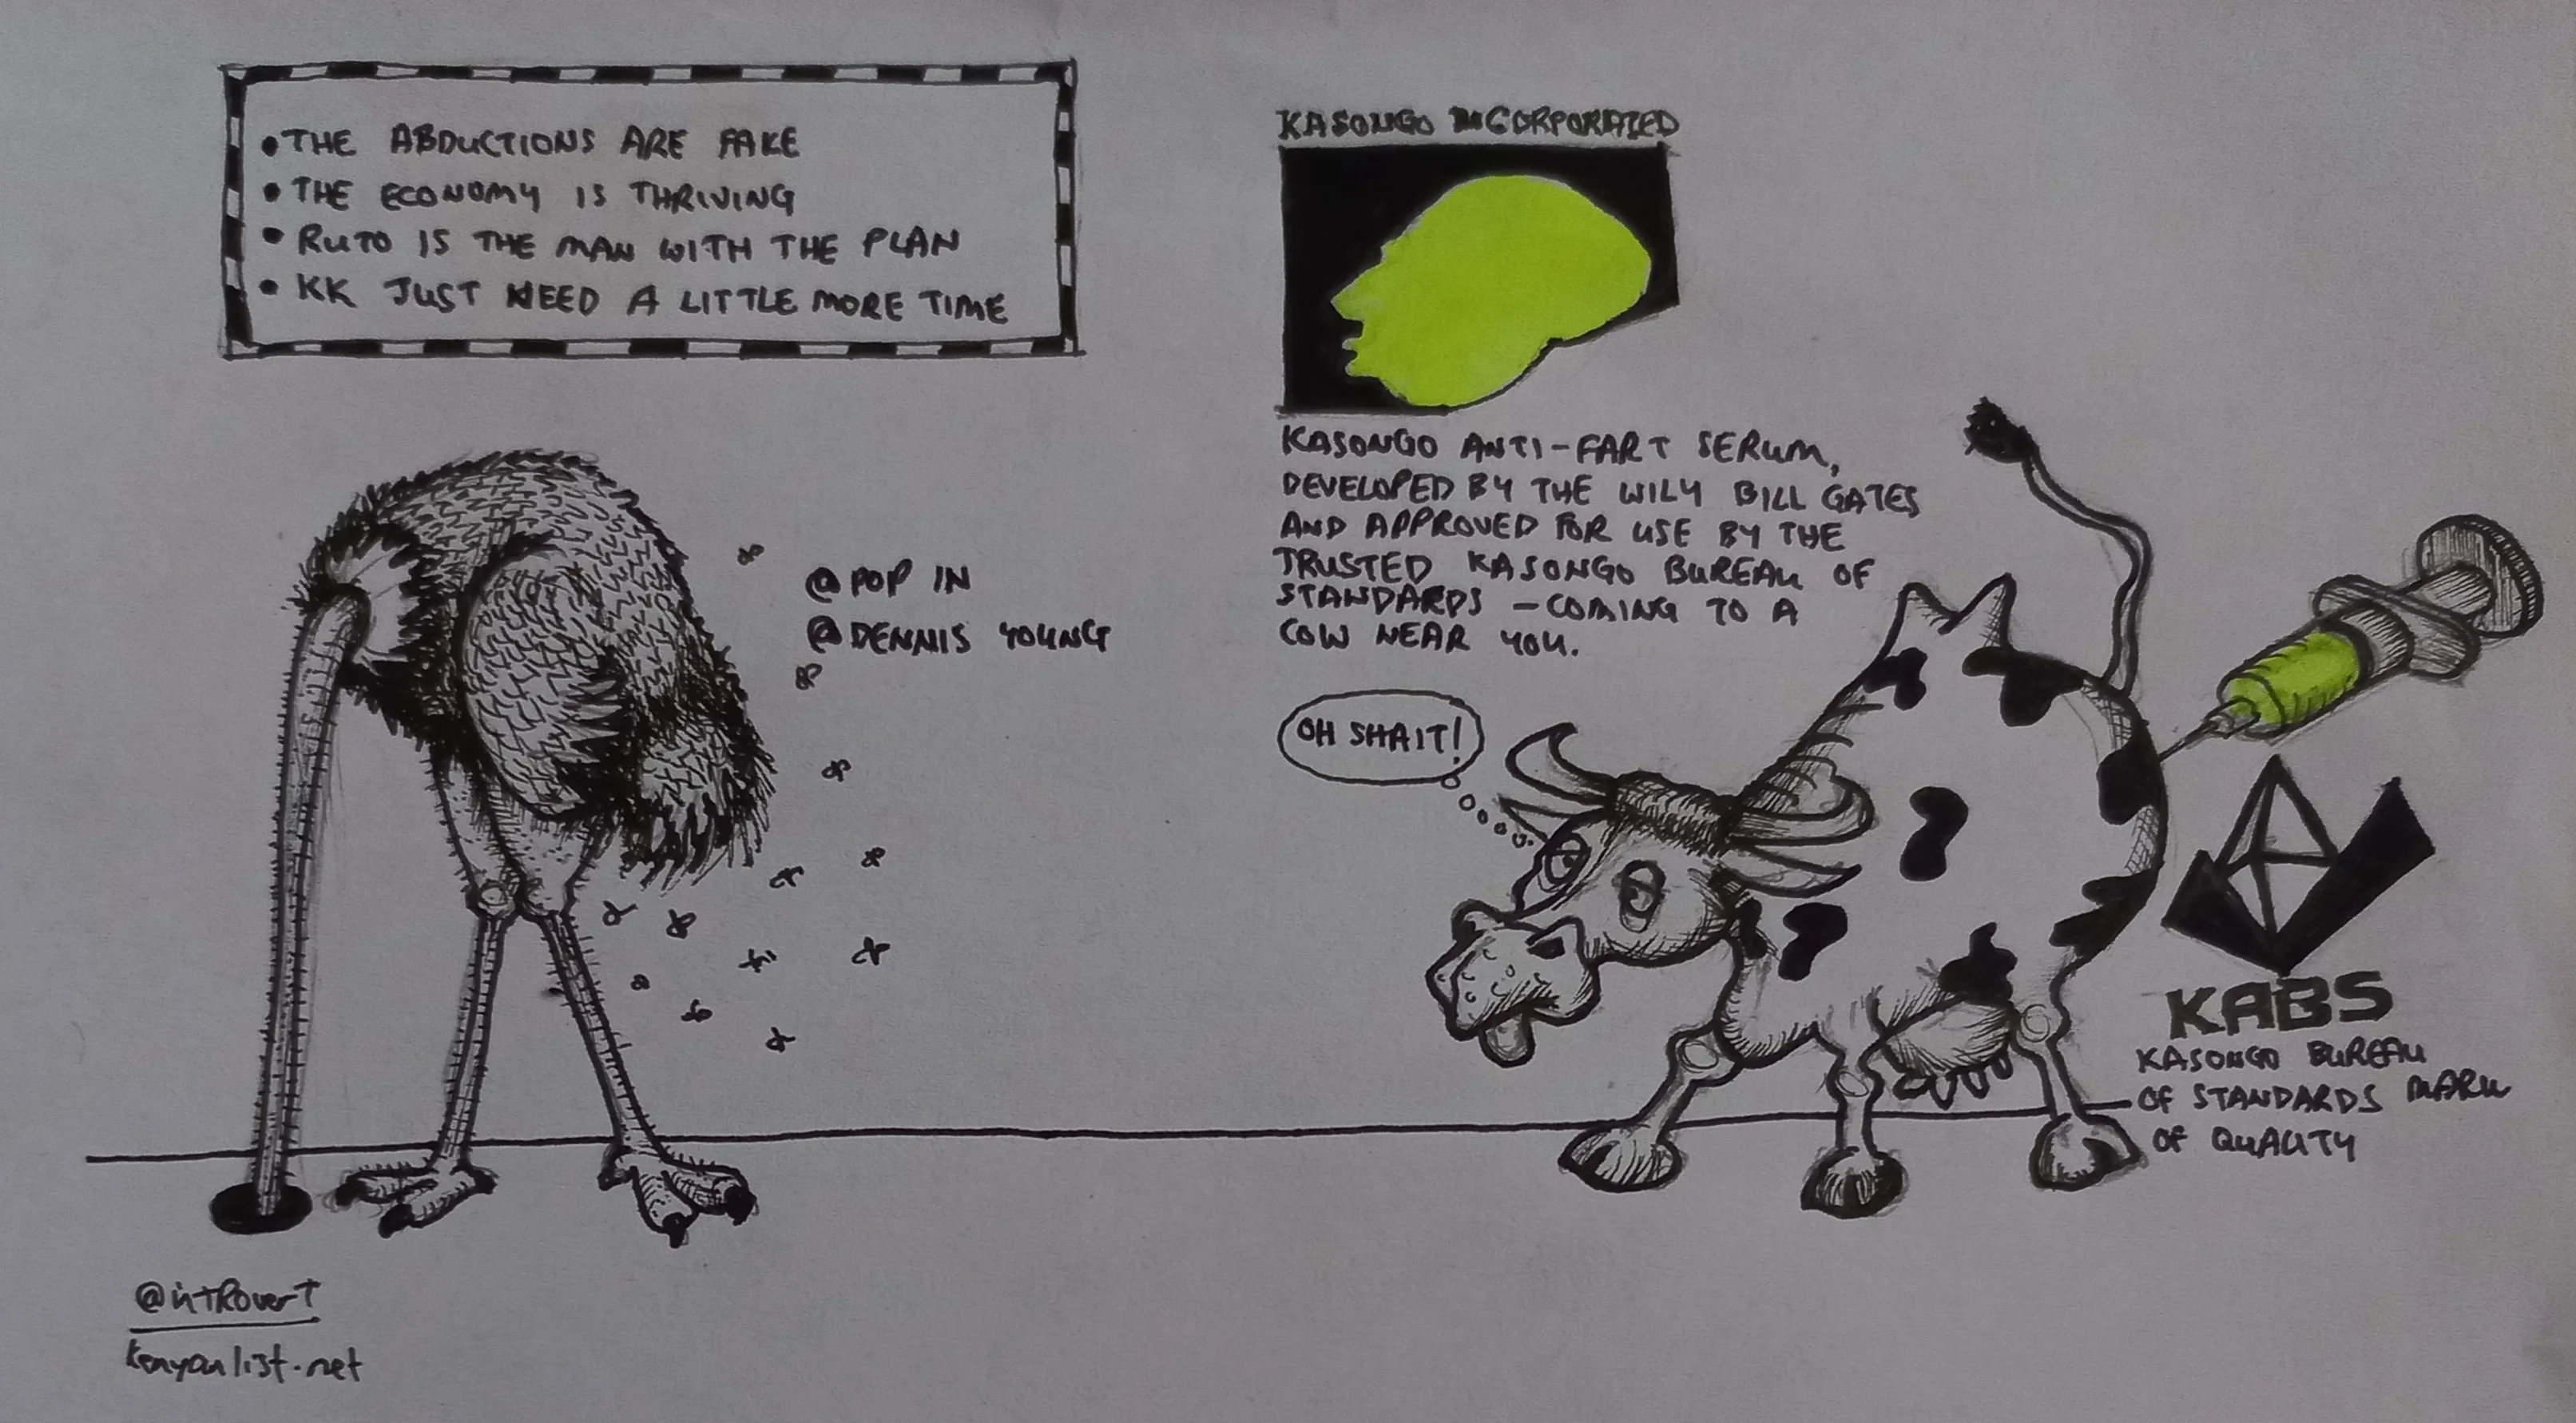 • THE ABDUCTIONS ARE FAKE
• THE ECONOMY IS THRIVING
• RUTO IS THE MAN WITH THE PLAN
• KK JUST NEED A LITTLE MORE TIME
@POP IN
@DENNIS YOUNG
KASONGO INCORPORATED
KASONGO ANTI-FART SERUM,
DEVELOPED BY THE WILY BILL GATES
AND APPROVED FOR USE BY THE
TRUSTED KASONGO BUREAU OF
STANDARDS - COMING TO A
COW NEAR YOU.
OH SHAIT!
KABS
KASONGO BUREAU
OF STANDARDS MARK
OF QUALITY
@introverT
kenyanlist.net